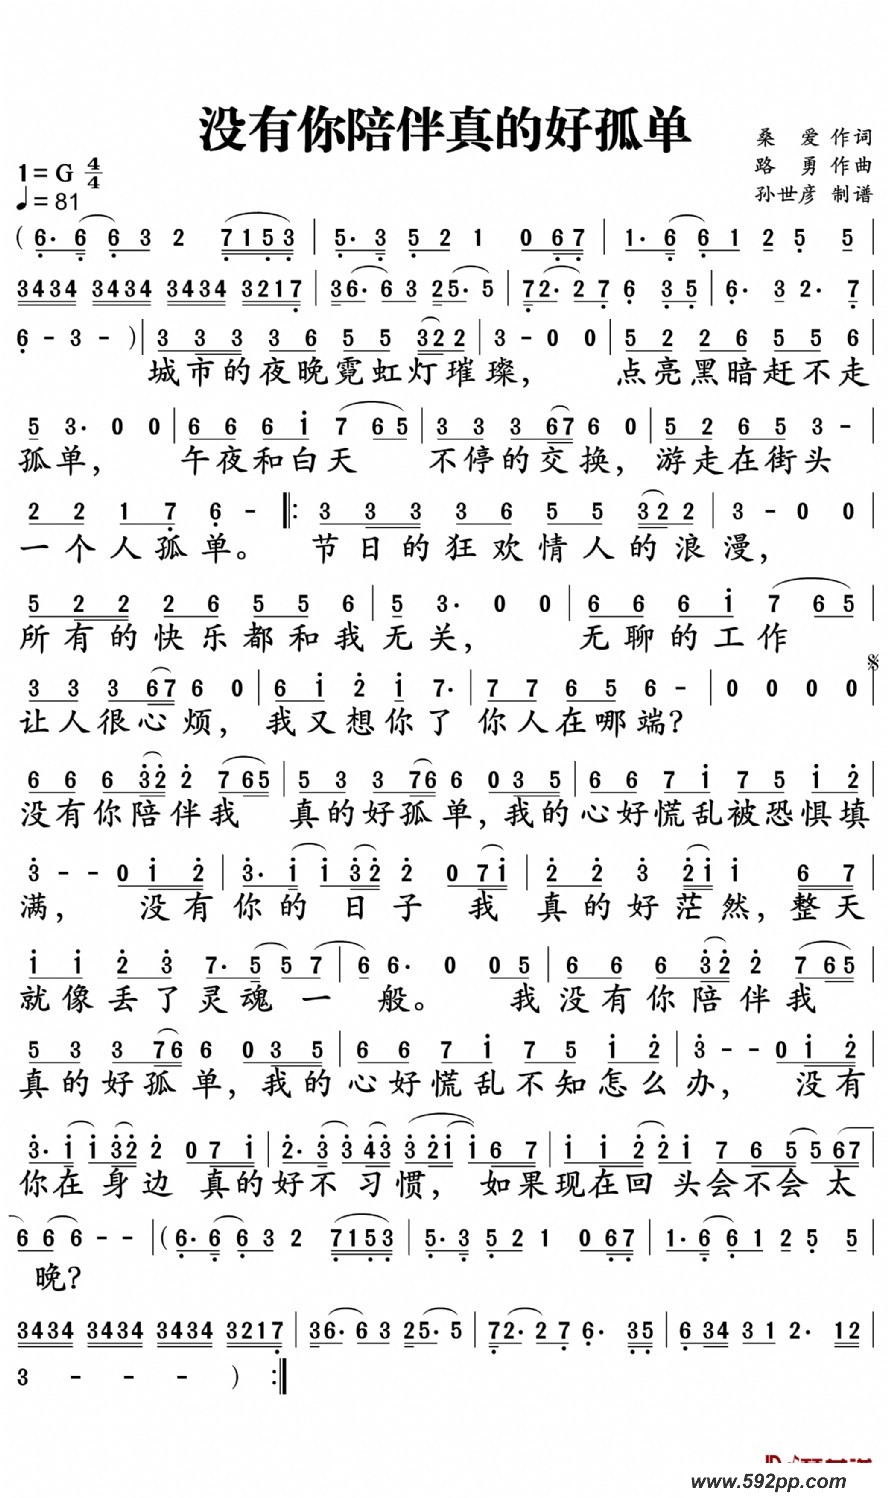 没有你陪伴真的好孤单
桑 爱 作词
1=G 4/4
路 勇 作曲
♩=81
孙世彦 制谱
(6· 6 6 3 2 7153 | 5· 3 5 2 1 0 67 | 1· 6 6 1 2 5 5 |
3434 3434 3434 3217 | 36· 6 3 25· 5 | 72· 2 7 6 3 5 | 6· 3 2· 7 |
6 - 3 - ) | 3 3 3 3 6 5 5 322 | 3 - 0 0 | 5 2 2 6 5 5 6 |
城市的夜晚霓虹灯璀璨， 点亮黑暗赶不走
5 3· 0 0 | 6 6 6 i 7 65 | 3 3 3 67 6 0 | 5 2 6 5 3 -
孤单， 午夜和白天 不停的交换，游走在街头
2 2 1 7 6 - ‖: 3 3 3 3 6 5 5 322 | 3 - 0 0 |
一个人孤单。 节日的狂欢情人的浪漫，
5 2 2 2 6 5 5 6 | 5 3· 0 0 | 6 6 6 i 7 65 |
所有的快乐都和我无关， 无聊的工作
3 3 3 67 6 0 | 6 i 2 i 7· | 7 7 6 5 6 - | 0 0 0 0 |
让人很心烦，我又想你了 你人在哪端？
6 6 6 322 7 65 | 5 3 3 76 6 0 3 5 | 6 6 7 i 7 5 i 2 |
没有你陪伴我 真的好孤单，我的心好慌乱被恐惧填
3 - - 0 i 2 | 3· i i 32 2 0 7i | 2 2 3 2i i 6 7 |
满， 没有你的日子 我 真的好茫然，整天
i i 2 3 7· 5 5 7 | 6 6· 0 0 5 | 6 6 6 32 2 7 65 |
就像丢了灵魂一 般。 我没有你陪伴我
5 3 3 76 6 0 3 5 | 6 6 7 i 7 5 i 2 | 3 - - 0 i 2 |
真的好孤单，我的心好慌乱不知怎么办， 没有
3· i i 32 2 0 7 i | 2· 3 3 43 3 2i i 6 7 | i i i 2 i 7 6 5 5 67
你在身边 真的好不习惯， 如果现在回头会不会太
6 6 6 - - | (6· 6 6 3 2 7153 | 5· 3 5 2 1 0 67 | 1· 6 6 1 2 5 5 |
晚？
3434 3434 3434 3217 | 36· 6 3 25· 5 | 72· 2 7 6· 35 | 6 34 3 1 2· 12
3 - - - ) :‖
www.592pp.com